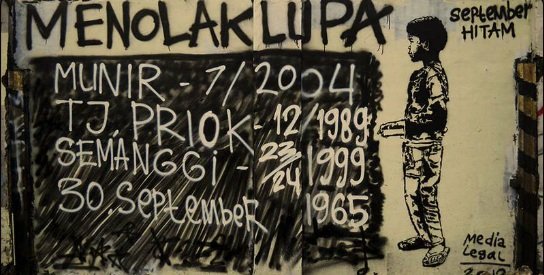 MENOLAK LUPA
september
HITAM
MUNIR - 7/2004
TJ. PRIOK - 12/1989
SEMANGGI - 23/24 1999
30. September 1965
Media
Legal